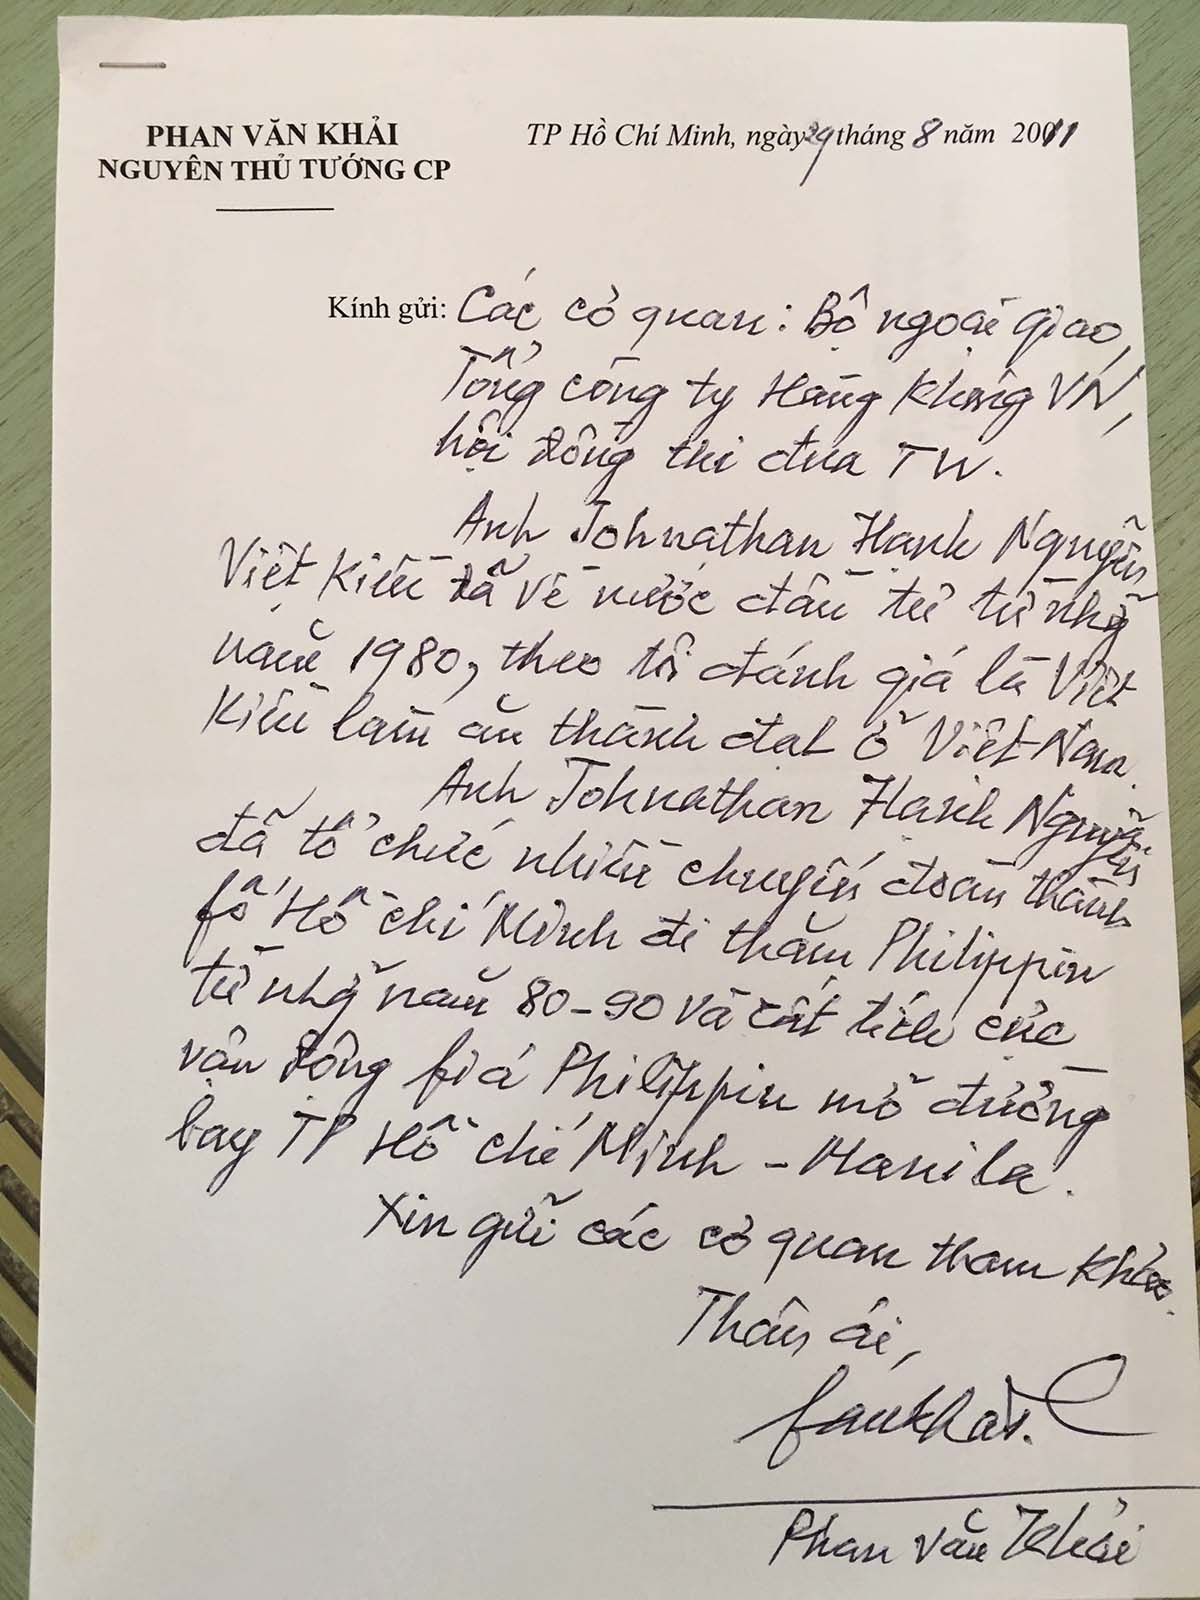 PHAN VĂN KHẢI
NGUYÊN THỦ TƯỚNG CP
TP Hồ Chí Minh, ngày 29 tháng 8 năm 2011
Kính gửi: Các cơ quan: Bộ ngoại giao,
Tổng công ty Hàng Không VN,
hội đồng thi đua TW.
Anh Johnathan Hạnh Nguyễn
Việt Kiều đã về nước đầu tư từ nhg̃
năm 1980, theo tôi đánh giá là Việt
Kiều làm ăn thành đạt ở Việt Nam.
Anh Johnathan Hạnh Nguyễn
đã tổ chức nhiều chuyến đoàn thành
fố Hồ Chí Minh đi thăm Philippin
từ nhg̃ năm 80-90 và rất tích cực
vận động fiá Philippin mở đường
bay TP Hồ Chí Minh - Manila.
Xin gửi các cơ quan tham khảo.
Thân ái,
fankhải.
Phan Văn Khải